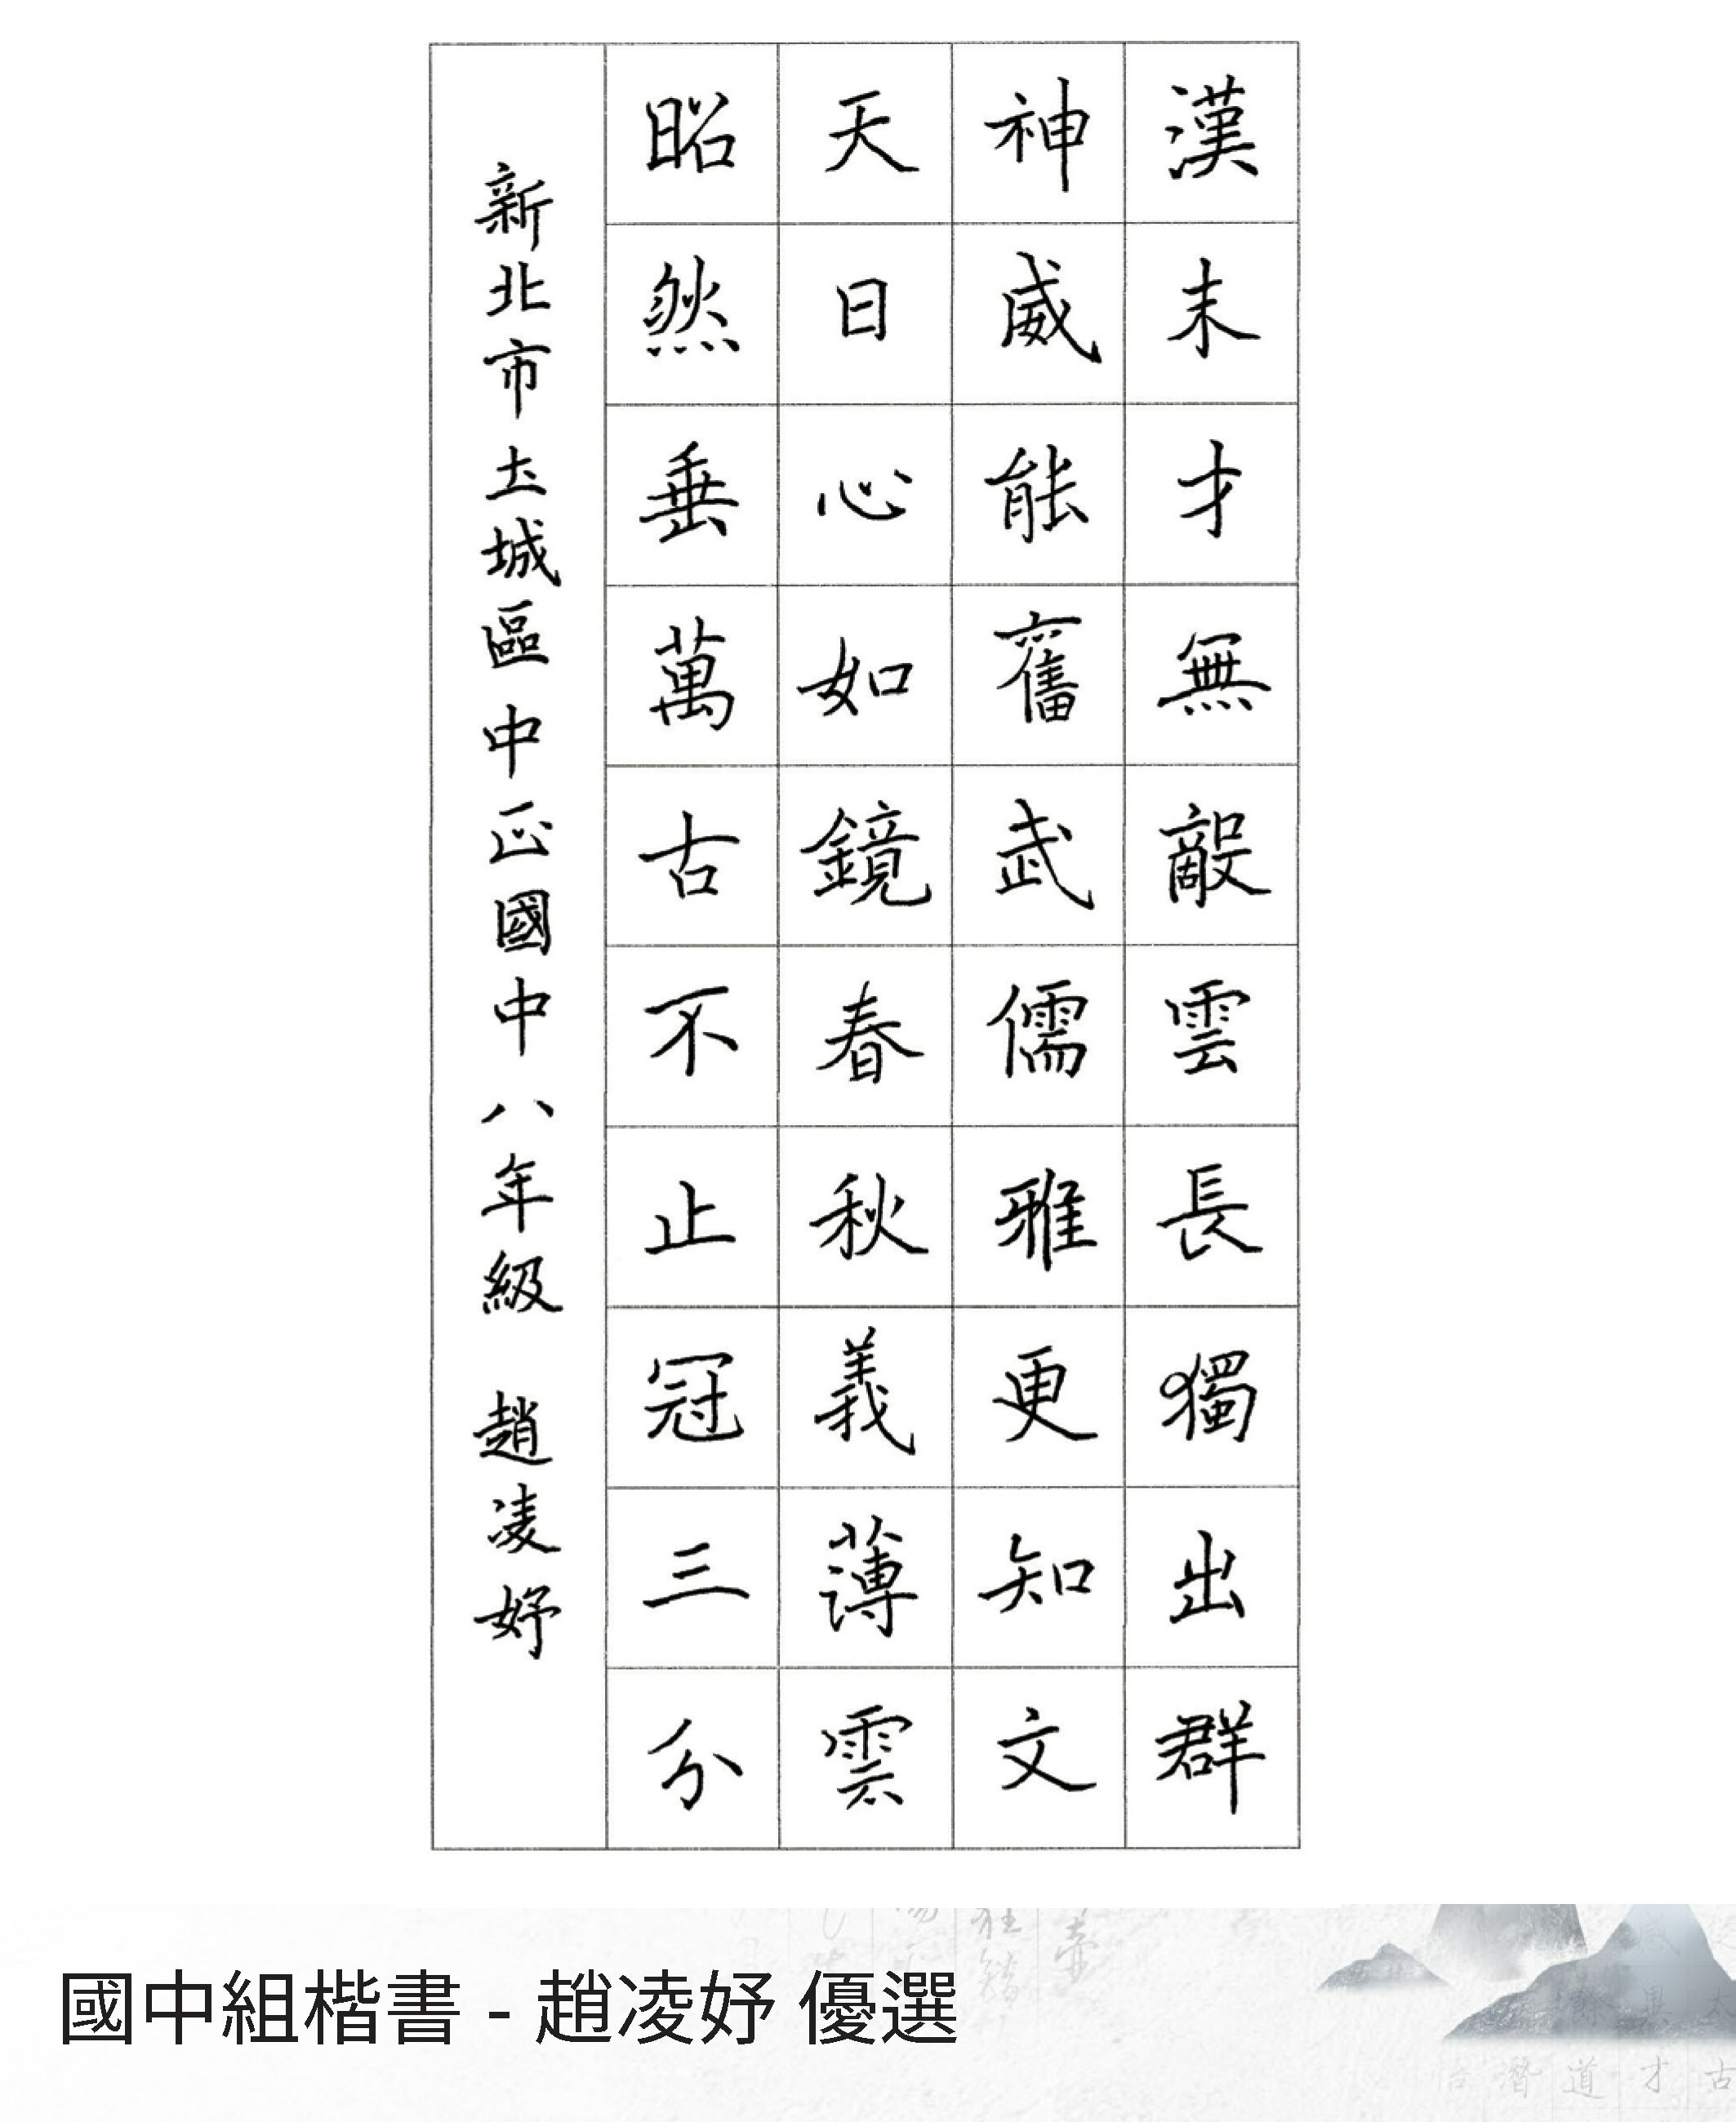 漢末才無敵雲長獨出群
神威能奮武儒雅更知文
天日心如鏡春秋義薄雲
昭然垂萬古不止冠三分
新北市土城區中正國中八年級 趙凌妤
國中組楷書 - 趙凌妤 優選